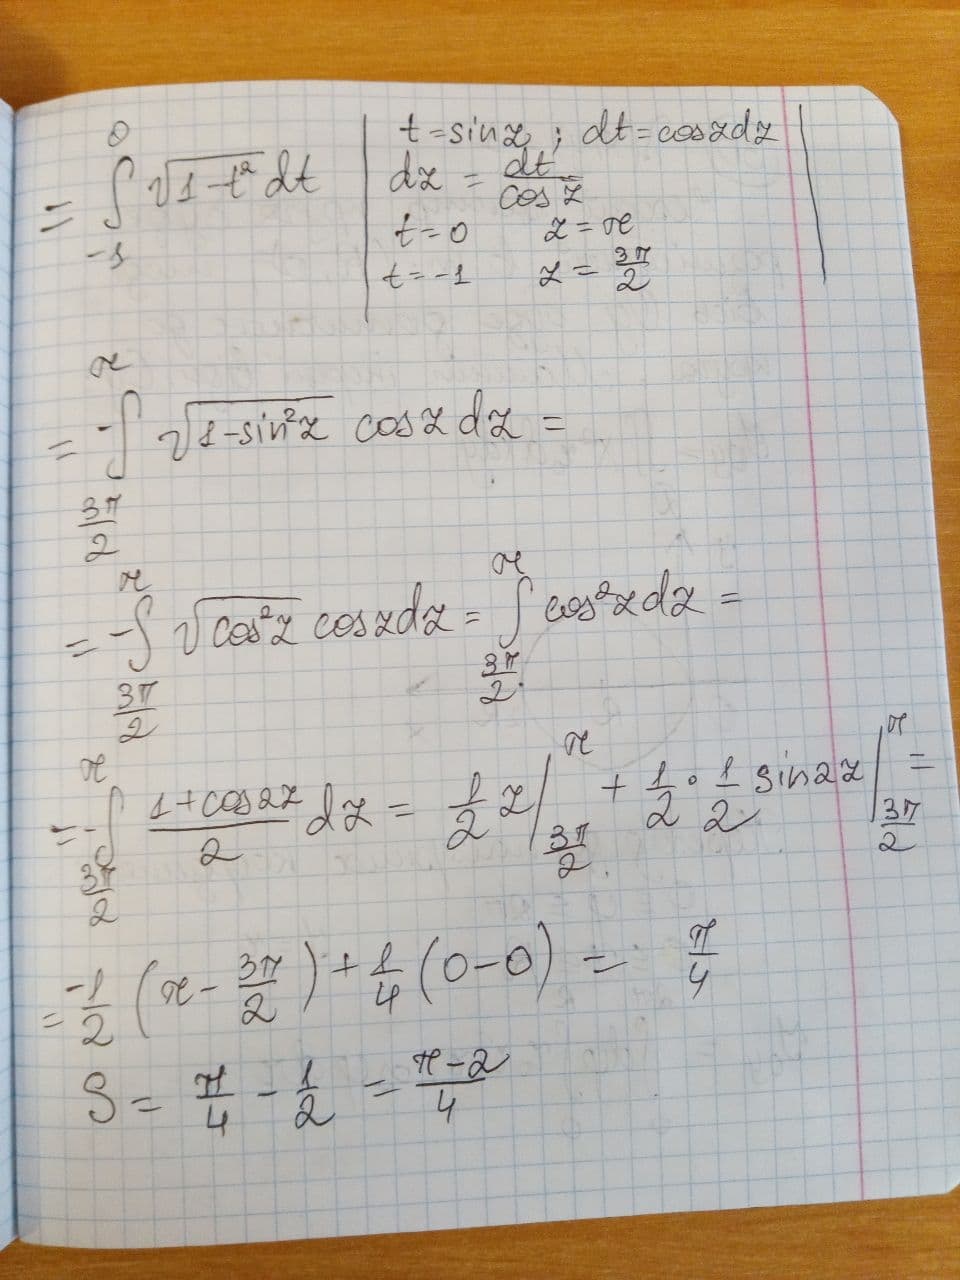 = ∫_{-1}^{0} √(1-t²) dt | t = sin z ; dt = cos z dz |
dz = dt/cos z
t = 0 z = π
t = -1 z = 3π/2
= -∫_{3π/2}^{π} √(1-sin²z) cos z dz =
= -∫_{3π/2}^{π} √(cos²z) cos z dz = ∫_{3π/2}^{π} cos²z dz =
= -∫_{3π/2}^{π} (1+cos2z)/2 dz = 1/2 z |_{3π/2}^{π} + 1/2 · 1/2 sin2z |_{3π/2}^{π} =
= -1/2 (π - 3π/2) + 1/4 (0-0) = π/4
S = π/4 - 1/2 = (π-2)/4